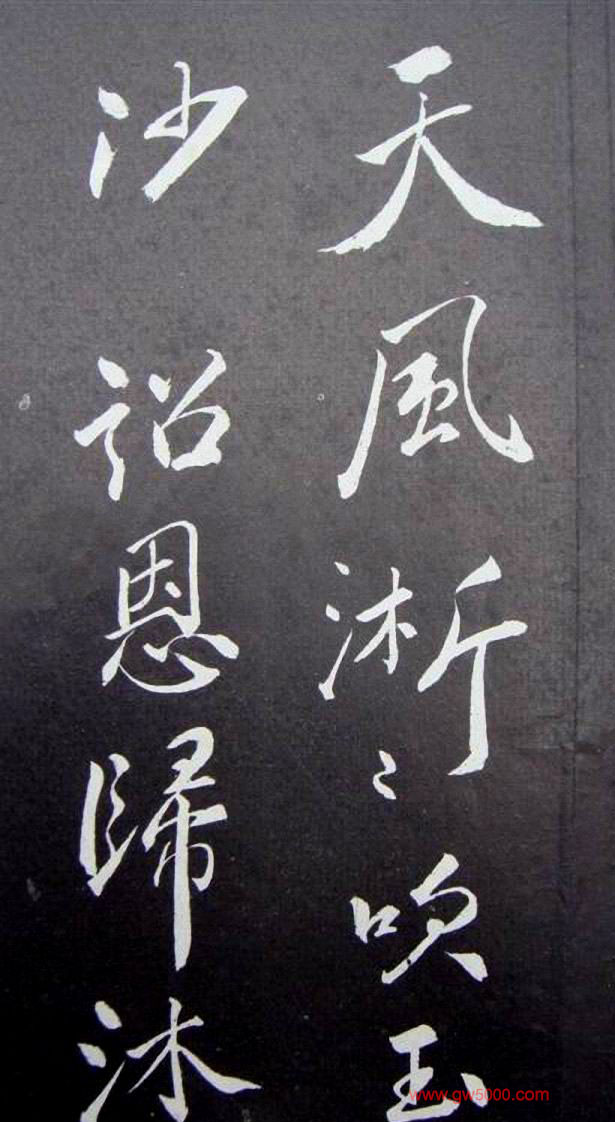 天風淅〻吹玉
沙詔恩歸沐
www.gw5000.com